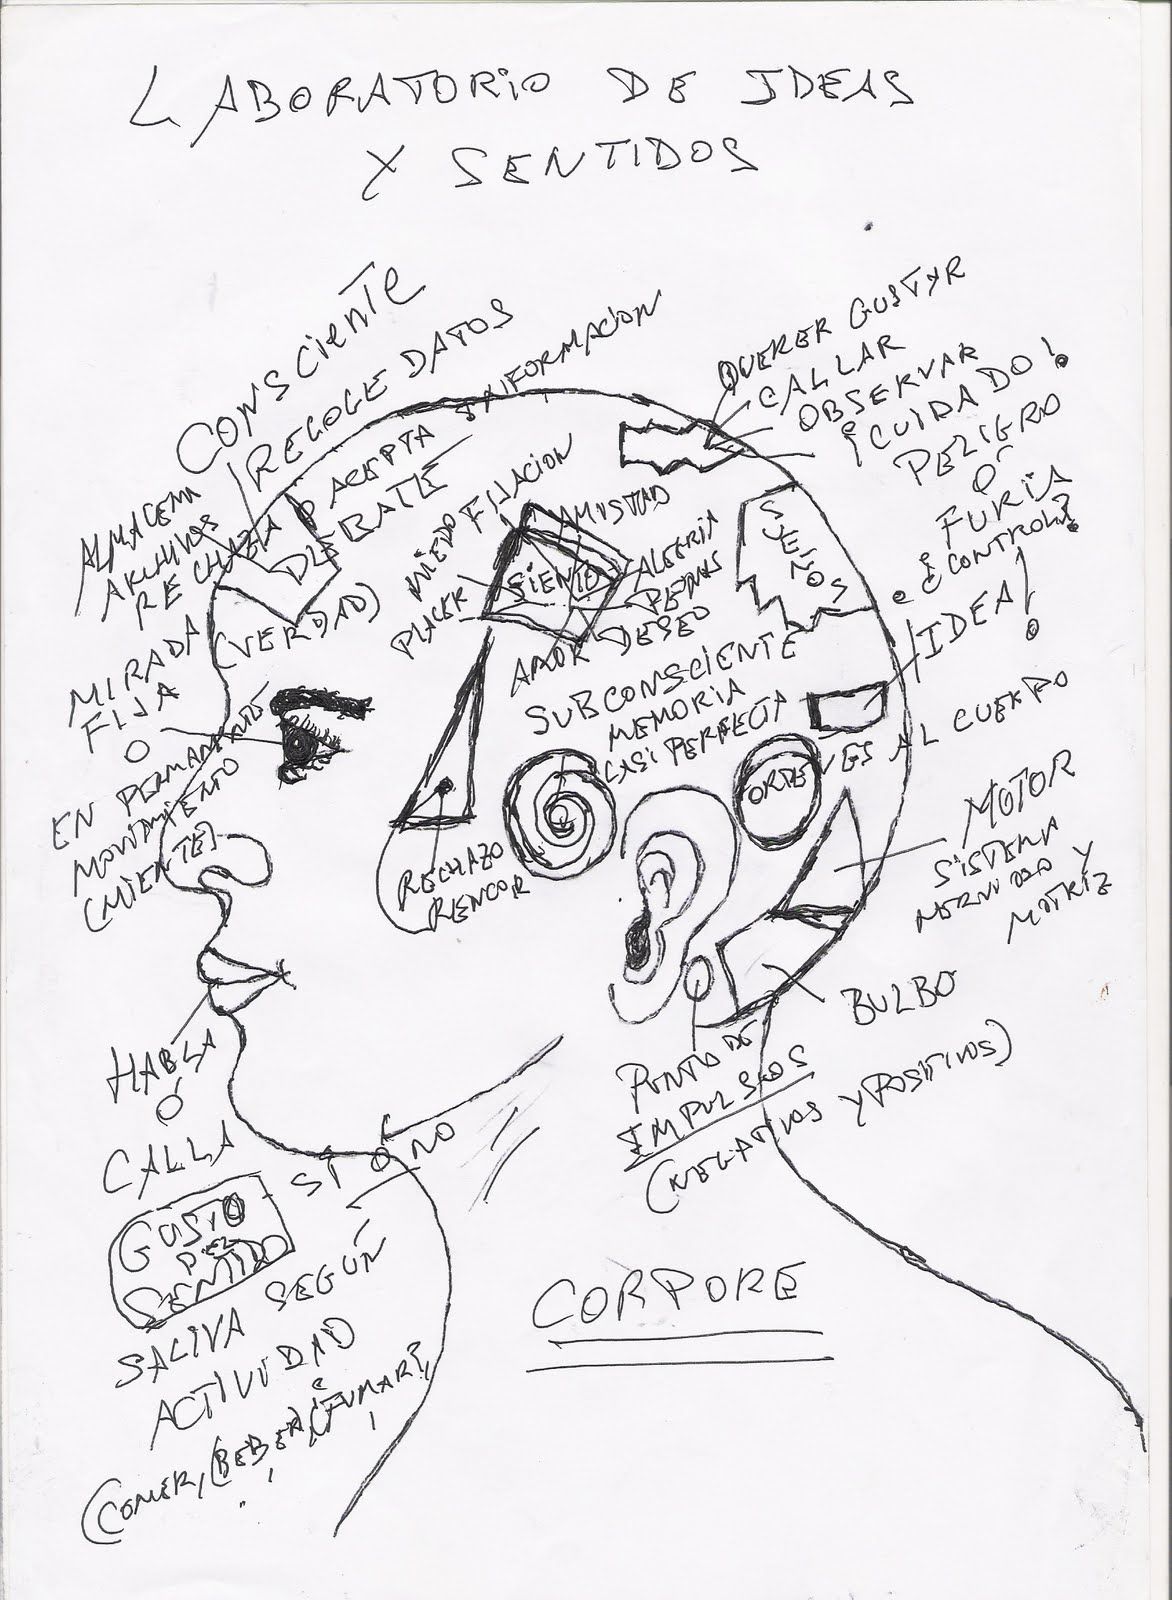 LABORATORIO DE IDEAS
Y SENTIDOS
CONSCIENTE
RECOGE DATOS
ALMACENA
ARCHIVOS
RECHAZA O ACEPTA INFORMACION
DEBATE
(VERDAD)
MIRADA
FIJA
O
EN PERMANENTE
MOVIMIENTO
(MIENTE)
QUERER GUSTAR
CALLAR
OBSERVAR
¡CUIDADO!
PELIGRO
O
FURIA
¿CONTROL?
MIEDO FIJACION
PLACER
AMISTAD
SIENTO
ALEGRIA
PENAS
DESEO
AMOR
SUEÑOS
SUBCONSCIENTE
MEMORIA
CASI PERFECTA
¡IDEA!
ORDENES AL CUERPO
RECHAZO
RENCOR
MOTOR
SISTEMA
NERVIOSO Y
MOTRIZ
BULBO
PUNTO DE
IMPULSOS
(NEGATIVOS Y POSITIVOS)
HABLA
Ó
CALLA
SI O NO
GUSTO
SENTIDO
SALIVA SEGÚN
ACTIVIDAD
(COMER, (BEBER) ¿FUMAR?,
CORPORE